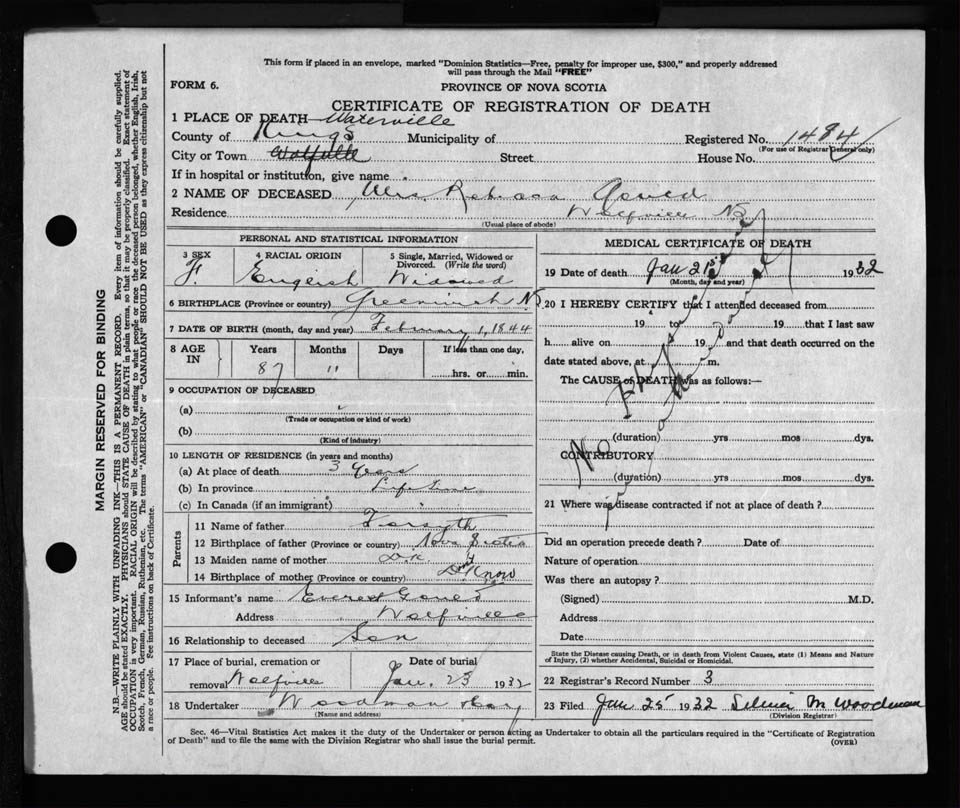 This form if placed in an envelope, marked "Dominion Statistics—Free, penalty for improper use, $300," and properly addressed
will pass through the Mail "FREE"
FORM 6.
PROVINCE OF NOVA SCOTIA
CERTIFICATE OF REGISTRATION OF DEATH
1 PLACE OF DEATH Waterville
County of Kings Municipality of Registered No. 1484
(For use of Registrar General only)
City or Town Wolfville Street House No.
If in hospital or institution, give name
2 NAME OF DECEASED Mrs. Rebecca
Residence Wolfville NS
(Usual place of abode)
PERSONAL AND STATISTICAL INFORMATION
3 SEX 4 RACIAL ORIGIN 5 Single, Married, Widowed or Divorced. (Write the word)
F. English Widowed
6 BIRTHPLACE (Province or country) Greenwich N.
7 DATE OF BIRTH (month, day and year) February 1, 1844
8 AGE IN Years Months Days If less than one day,
87 11 hrs. or min.
9 OCCUPATION OF DECEASED
(a)
(Trade or occupation or kind of work)
(b)
(Kind of industry)
10 LENGTH OF RESIDENCE (in years and months)
(a) At place of death 3 Years
(b) In province Life Time
(c) In Canada (if an immigrant)
Parents
11 Name of father Forsyth
12 Birthplace of father (Province or country) Nova Scotia
13 Maiden name of mother
14 Birthplace of mother (Province or country) Dont Know
15 Informant's name Everett
Address Wolfville
16 Relationship to deceased Son
17 Place of burial, cremation or Date of burial
removal Wolfville Jan. 23 1932
18 Undertaker Woodman
(Name and address)
MEDICAL CERTIFICATE OF DEATH
19 Date of death Jan 21st 1932
(Month, day and year)
20 I HEREBY CERTIFY that I attended deceased from
19 to 19 that I last saw
h alive on 19 and that death occurred on the
date stated above, at m.
The CAUSE of DEATH was as follows:—
No Physician
(duration) yrs mos dys.
CONTRIBUTORY
(duration) yrs mos dys.
21 Where was disease contracted if not at place of death?
Did an operation precede death? Date of
Nature of operation
Was there an autopsy?
(Signed) M.D.
Address
Date
State the Disease causing Death, or in death from Violent Causes, state (1) Means and Nature
of Injury, (2) whether Accidental, Suicidal or Homicidal.
22 Registrar's Record Number 3
23 Filed Jan 25 1932 M Woodman
(Division Registrar)
Sec. 46—Vital Statistics Act makes it the duty of the Undertaker or person acting as Undertaker to obtain all the particulars required in the "Certificate of Registration
of Death" and to file the same with the Division Registrar who shall issue the burial permit.
(OVER)
MARGIN RESERVED FOR BINDING
N.B.—WRITE PLAINLY WITH UNFADING INK—THIS IS A PERMANENT RECORD. Every item of information should be carefully supplied.
AGE should be stated EXACTLY. PHYSICIANS should STATE CAUSE OF DEATH in plain terms, so that it may be properly classified. Exact statement of
OCCUPATION is very important. RACIAL ORIGIN will be described by stating to what people or race the deceased person belonged, whether English, Irish,
Scotch, French, German, Russian, Ruthenian, etc. The terms "AMERICAN" or "CANADIAN" SHOULD NOT BE USED as they express citizenship but not
a race or people. See instructions on back of Certificate.